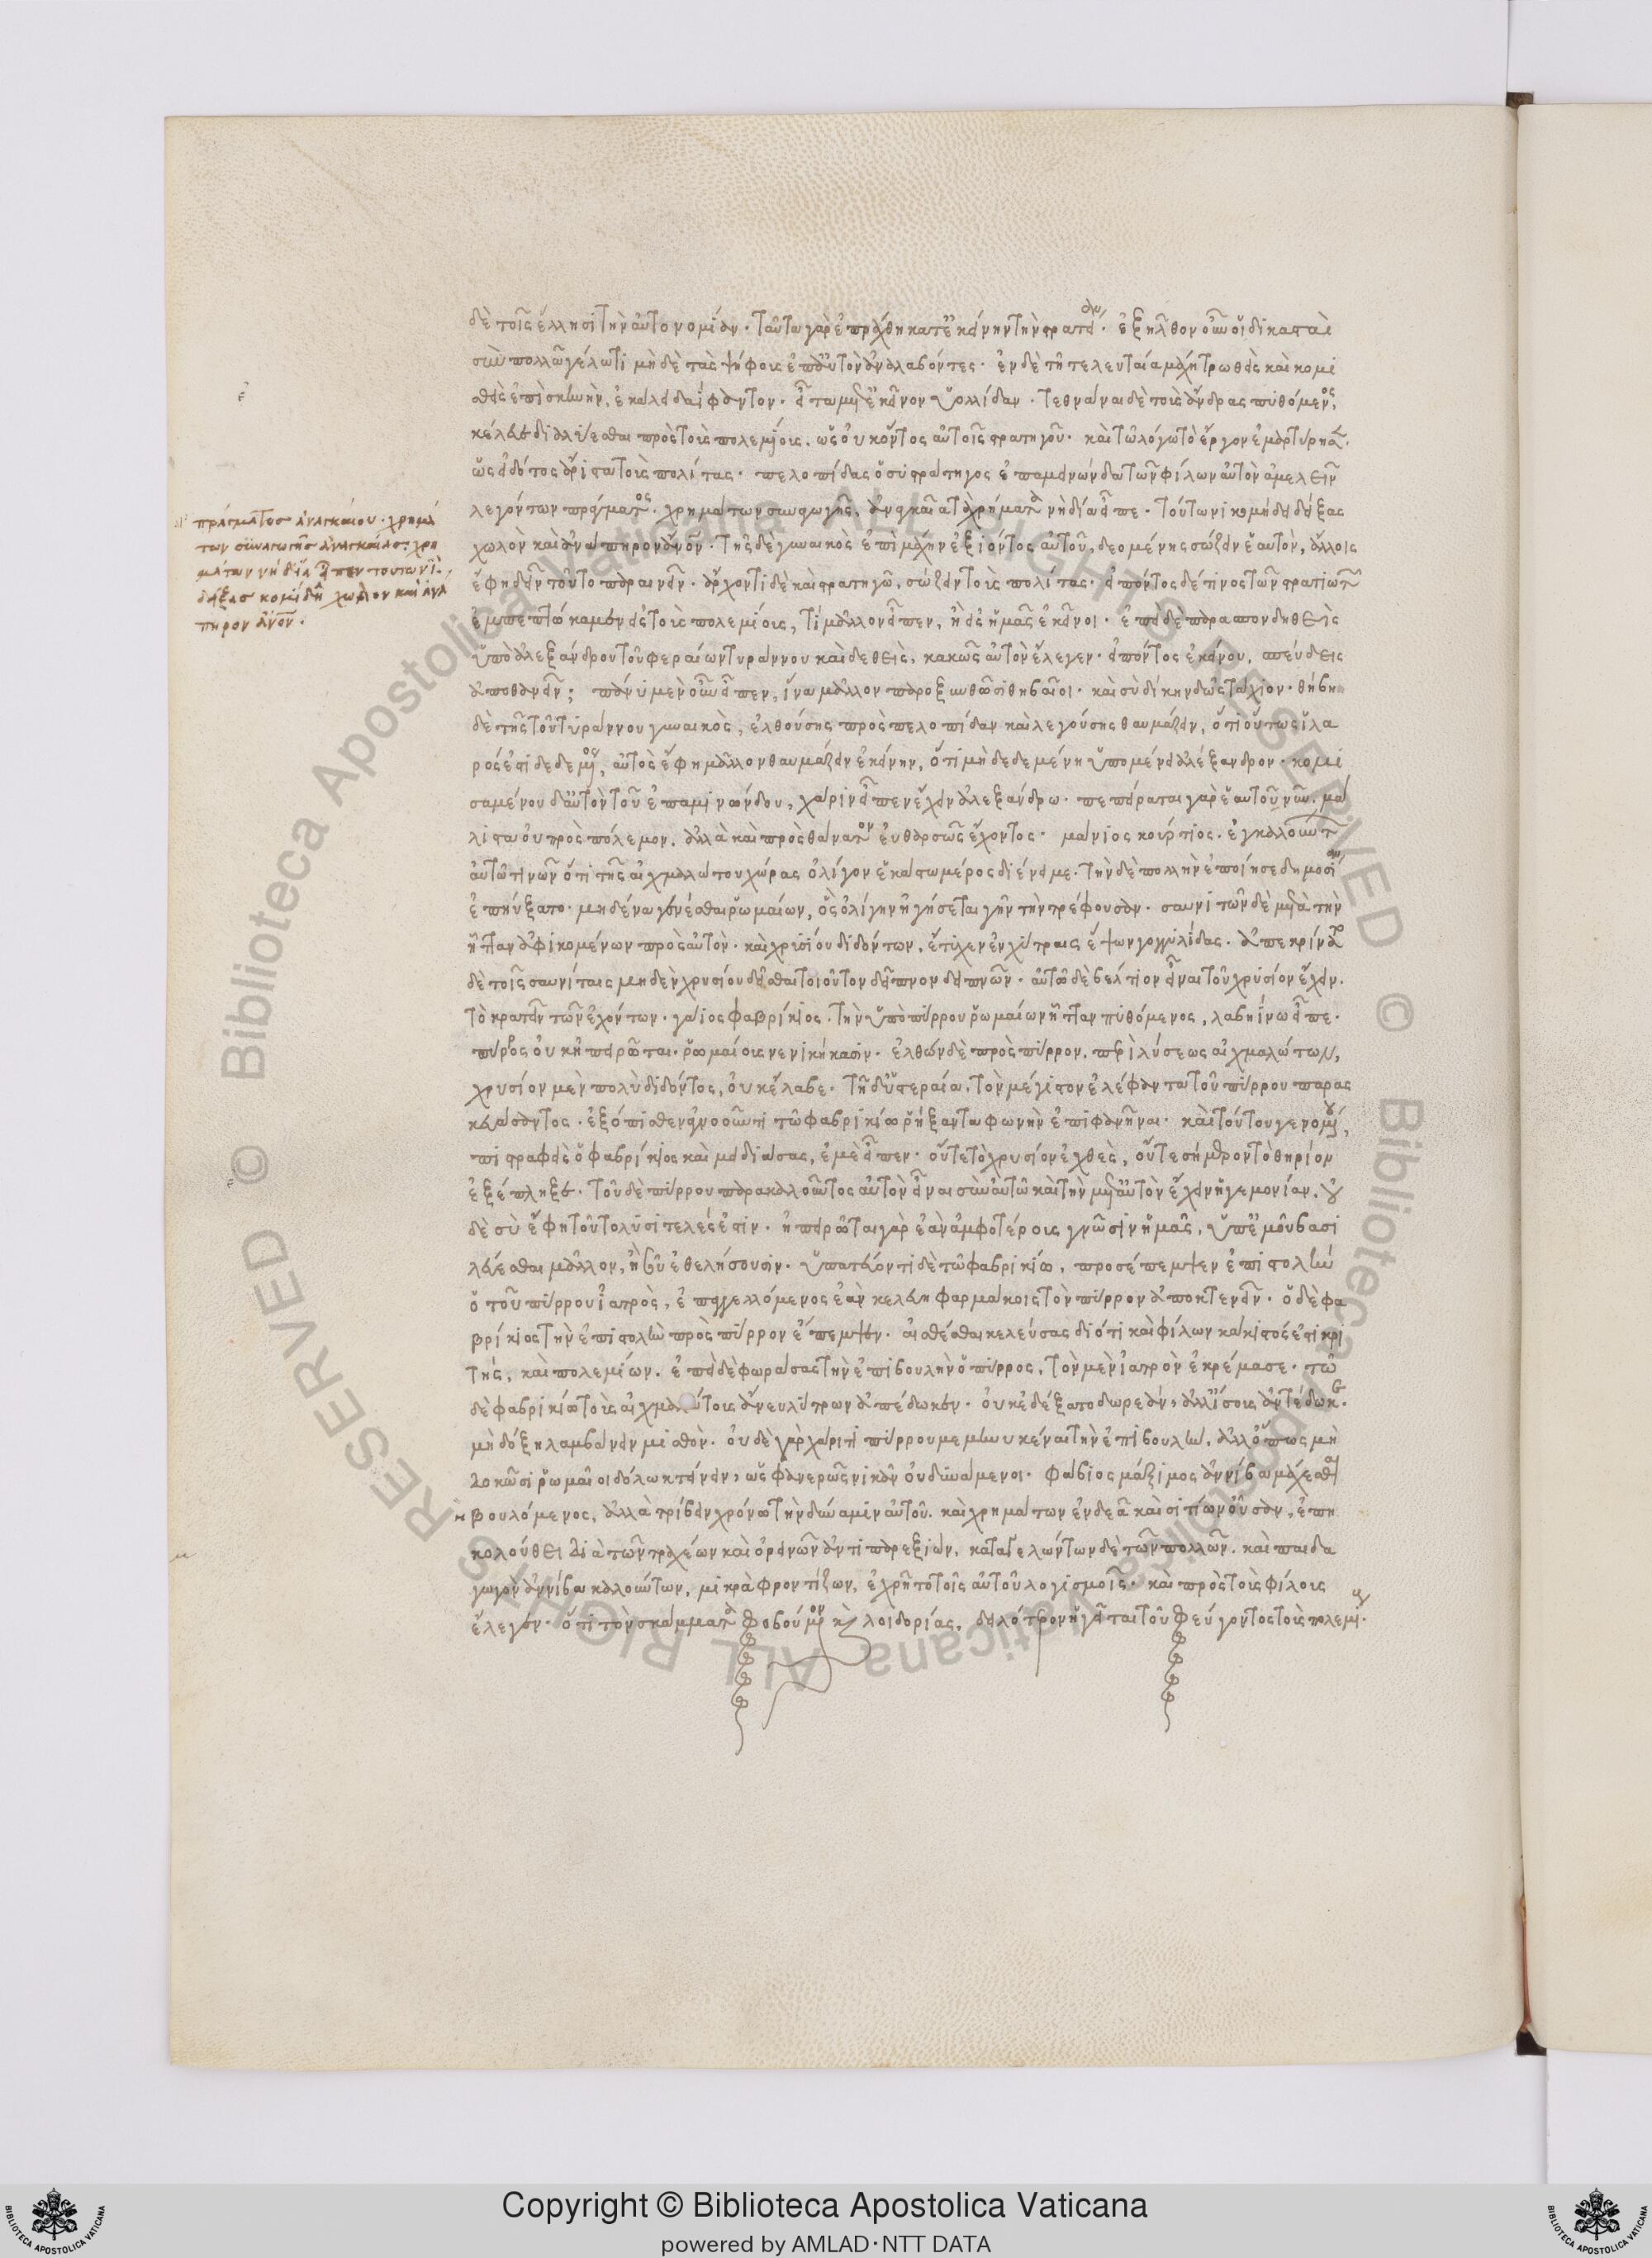 δὲ τοῖς ἕλλησι τὴν αὐτονομίαν. ταῦτα γὰρ ἐπράχθη κατ' ἐκείνην τὴν στρατείαν. ἐξῆλθον οὖν οἱ δικασταὶ
σὺν πολλῶ γέλωτι μὴ δὲ τὰς ψήφους ἐπ' αὐτὸν ἀναλαβόντες. ἐν δὲ τῇ τελευταία μάχη τρωθεὶς καὶ κομι
σθεὶς ἐπὶ σκηνὴν, ἐκάλει δαΐφαντον. εἶτα μετ' ἐκεῖνον ἰολλίδαν. τεθνάναι δὲ τοὺς ἄνδρας πυθόμενος,
κέλευε διαλύεσθαι πρὸς τοὺς πολεμίους. ὡς οὐκ ὄντος αὐτοῖς στρατηγοῦ. καὶ τῶ λόγω τὸ ἔργον ἐμαρτύρησε.
ὡς εἰδότος ἄριστα τοὺς πολίτας. πελοπίδας ὁ συστράτηγος ἐπαμεινώνδα τῶν φίλων αὐτὸν ἀμελεῖν
λεγόντων πράγματος. χρημάτων συναγωγῆς, ἀναγκαῖα τὰ χρήματα νὴ δία εἶπε. τούτω νικομήδει δείξας
χωλὸν καὶ ἀνάπηρον ἄνθρωπον. τῆς δὲ γυναικὸς ἐπὶ μάχην ἐξιόντος αὐτοῦ, δεομένης σώζειν ἑαυτὸν, ἄλλοις
ἔφη δεῖν τοῦτο παραινεῖν. ἄρχοντι δὲ καὶ στρατηγῶ, σώζειν τοὺς πολίτας. εἰπόντος δέ τινος τῶν στρατιωτῶν
ἐμπεπτώκαμεν εἰς τοὺς πολεμίους, τί μᾶλλον εἶπεν, ἢ εἰς ἡμᾶς ἐκεῖνοι. ἐπεὶ δὲ παρασπονδηθεὶς
ὑπὸ ἀλεξάνδρου τοῦ φεραίων τυράννου καὶ δεθεὶς, κακῶς αὐτὸν ἔλεγεν. εἰπόντος ἐκείνου, σπεύδεις
ἀποθανεῖν; πάνυ μὲν οὖν εἶπεν, ἵνα μᾶλλον παροξυνθῶσι θηβαῖοι. καὶ σὺ δίκην δῶς τάχιον. θήβη
δὲ τῆς τοῦ τυράννου γυναικὸς, ἐλθούσης πρὸς πελοπίδαν καὶ λεγούσης θαυμάζειν, ὅτι οὕτως ἱλα
ρός ἐστι δεδεμένος, αὐτὸς ἔφη μᾶλλον θαυμάζειν ἐκείνην, ὅτι μὴ δεδεμένη ὑπομένει ἀλέξανδρον. κομι
σαμένου δ' αὐτὸν τοῦ ἐπαμινώνδου, χάριν εἶπεν ἔχειν ἀλεξάνδρω. πεπείραται γὰρ ἑαυτοῦ νῦν. μά
λιστα οὐ πρὸς πόλεμον. ἀλλὰ καὶ πρὸς θάνατον εὐθαρσῶς ἔχοντος. μάνιος κούρτιος. ἐγκαλούντων
αὐτῶ τινῶν ὅτι τῆς αἰχμαλώτου χώρας ὀλίγον ἑκάστω μέρος διένειμε. τὴν δὲ πολλὴν ἐποίησε δημοσίαν
ἐπηύξατο. μηδένα γενέσθαι ῥωμαίων, ὃς ὀλίγην ἡγήσεται γῆν τὴν τρέφουσαν. σαυνιτῶν δὲ μετὰ τὴν
ἧτταν ἀφικομένων πρὸς αὐτὸν. καὶ χρυσίου διδόντων, ἔτυχεν ἐν χύτραις ἕψων γογγυλίδας. ἀπεκρίνατο
δὲ τοῖς σαυνίταις μηδὲν χρυσίου δεῖσθαι τοιοῦτον δεῖπνον δειπνῶν. αὐτῶ δὲ βέλτιον εἶναι τοῦ χρυσίον ἔχειν.
τὸ κρατεῖν τῶν ἐχόντων. γάιος φαβρίκιος. τὴν ὑπὸ πύρρου ῥωμαίων ἧτταν πυθόμενος, λαβηίνω εἶπε.
πύρρος οὐκ ἠπειρῶται. ῥωμαίους νενικήκασιν. ἐλθὼν δὲ πρὸς πύρρον. περὶ λύσεως αἰχμαλώτων,
χρυσίον μὲν πολὺ διδόντος, οὐκ ἔλαβε. τῇ δ' ὑστεραία. τὸν μέγιστον ἐλέφαντα τοῦ πύρρου παρας
κευάσαντος. ἐξόπισθεν ἀγνοοῦντι τῶ φαβρικίω ῥήξαντα φωνὴν ἐπιφανῆναι. καὶ τούτου γενομένου,
ἐπιστραφεὶς ὁ φαβρίκιος καὶ μειδιάσας, ἐμὲ εἶπεν. οὔτε τὸ χρυσίον ἐχθὲς, οὔτε σήμερον τὸ θηρίον
ἐξέπληξε. τοῦ δὲ πύρρου παρακαλοῦντος αὐτὸν εἶναι σὺν αὐτῶ καὶ τὴν μετ' αὐτὸν ἔχειν ἡγεμονίαν. οὐ
δὲ σὺ ἔφη τοῦτο λυσιτελές ἐστιν. ἠπειρῶται γὰρ ἐὰν ἀμφοτέρους γνῶσιν ἡμᾶς, ὑπ' ἐμοῦ βασι
λεύεσθαι μᾶλλον, ἢ σοῦ ἐθελήσουσιν. ὑπατεύοντι δὲ τῶ φαβρικίω, προσέπεμψεν ἐπιστολὴν
ὁ τοῦ πύρρου ἰατρὸς, ἐπαγγελλόμενος ἐὰν κελεύη φαρμάκοις τὸν πύρρον ἀποκτενεῖν. ὁ δὲ φα
βρίκιος τὴν ἐπιστολὴν πρὸς πύρρον ἔπεμψεν. αἰσθέσθαι κελεύσας διότι καὶ φίλων κάκιστός ἐστι κρι
τὴς, καὶ πολεμίων. ἐπεὶ δὲ φωράσας τὴν ἐπιβουλὴν ὁ πύρρος, τὸν μὲν ἰατρὸν ἐκρέμασε. τῶ
δὲ φαβρικίω τοὺς αἰχμαλώτους ἄνευ λύτρων ἀπέδωκεν. οὐκ ἐδέξατο δωρεὰν, ἀλλ' ἴσους ἀντέδωκε.
μὴ δόξη λαμβάνειν μισθὸν. οὐδὲ γὰρ χάριτι πύρρου μεμηνυκέναι τὴν ἐπιβουλὴν. ἀλλ' ὅπως μὴ
δοκῶσι ῥωμαῖοι δόλω κτείνειν, ὡς φανερῶς νικᾶν οὐ δυνάμενοι. φάβιος μάξιμος ἀννίβα μάχεσθαι
μὴ βουλόμενος, ἀλλὰ τρίβειν χρόνω τὴν δύναμιν αὐτοῦ. καὶ χρημάτων ἐνδεᾶ καὶ σιτίων οὖσαν, ἐπη
κολούθει διὰ τῶν τραχέων καὶ ὀρεινῶν ἀντιπαρεξιὼν, καταγελώντων δὲ τῶν πολλῶν. καὶ παιδα
γωγὸν ἀννίβα καλούντων, μικρὰ φροντίζων, ἐχρῆτο τοῖς αὑτοῦ λογισμοῖς. καὶ πρὸς τοὺς φίλους
ἔλεγεν. ὅτι τὸν σκώμματα φοβούμενον καὶ λοιδορίας, δειλότερον ἡγεῖται τοῦ φεύγοντος τοὺς πολεμίους.
πράγματος ἀναγκαίου. χρημά
των συναγωγῆς ἀναγκαίας. χρη
μάτων νὴ δία εἶπεν τουτωνὶ.
δείξας κομιδῇ χωλὸν καὶ ἀνά
πηρον ἄνθρωπον.